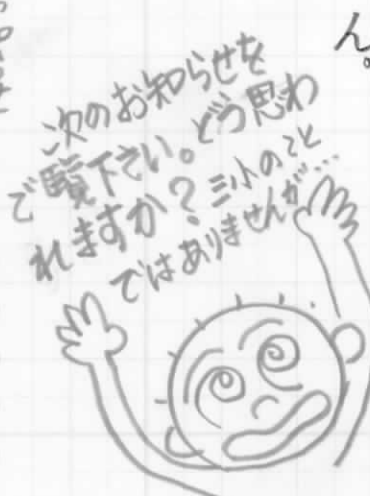 ん。
次のお知らせを
ご覧下さい。どう思わ
れますか？三小のこと
ではありませんが…